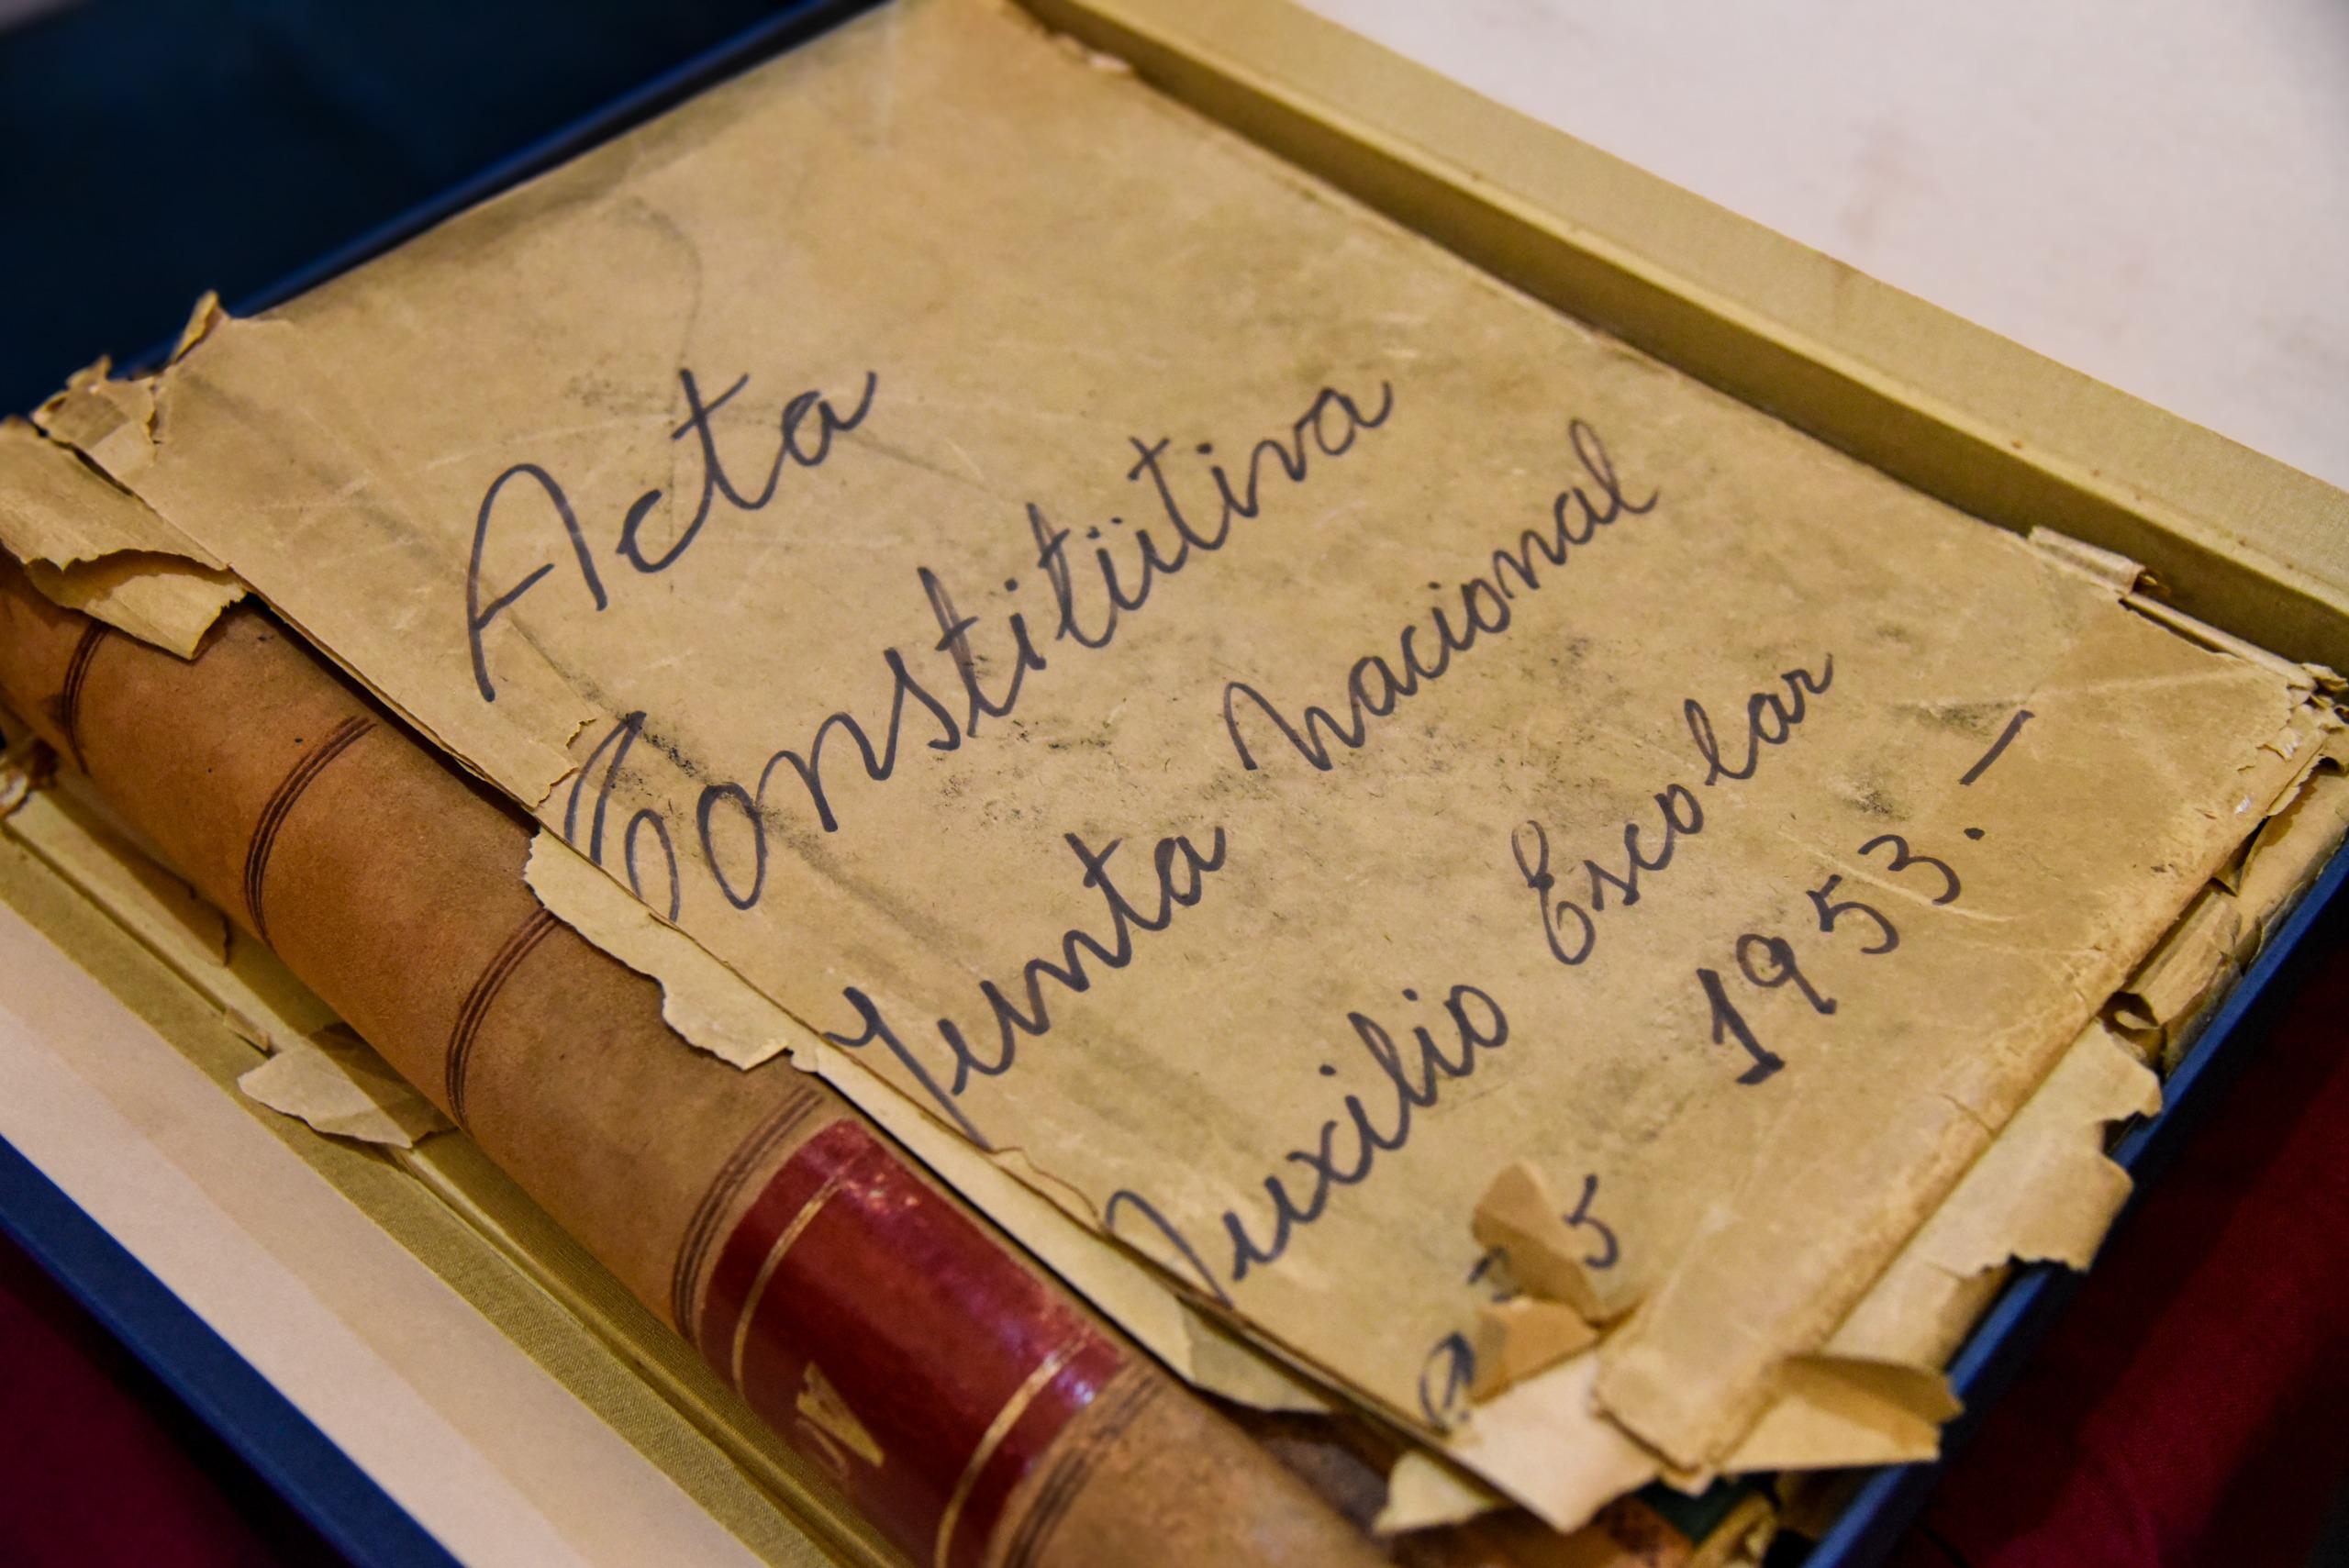 Acta
Constitutiva
Junta Nacional
Auxilio Escolar
1953.-
5
A